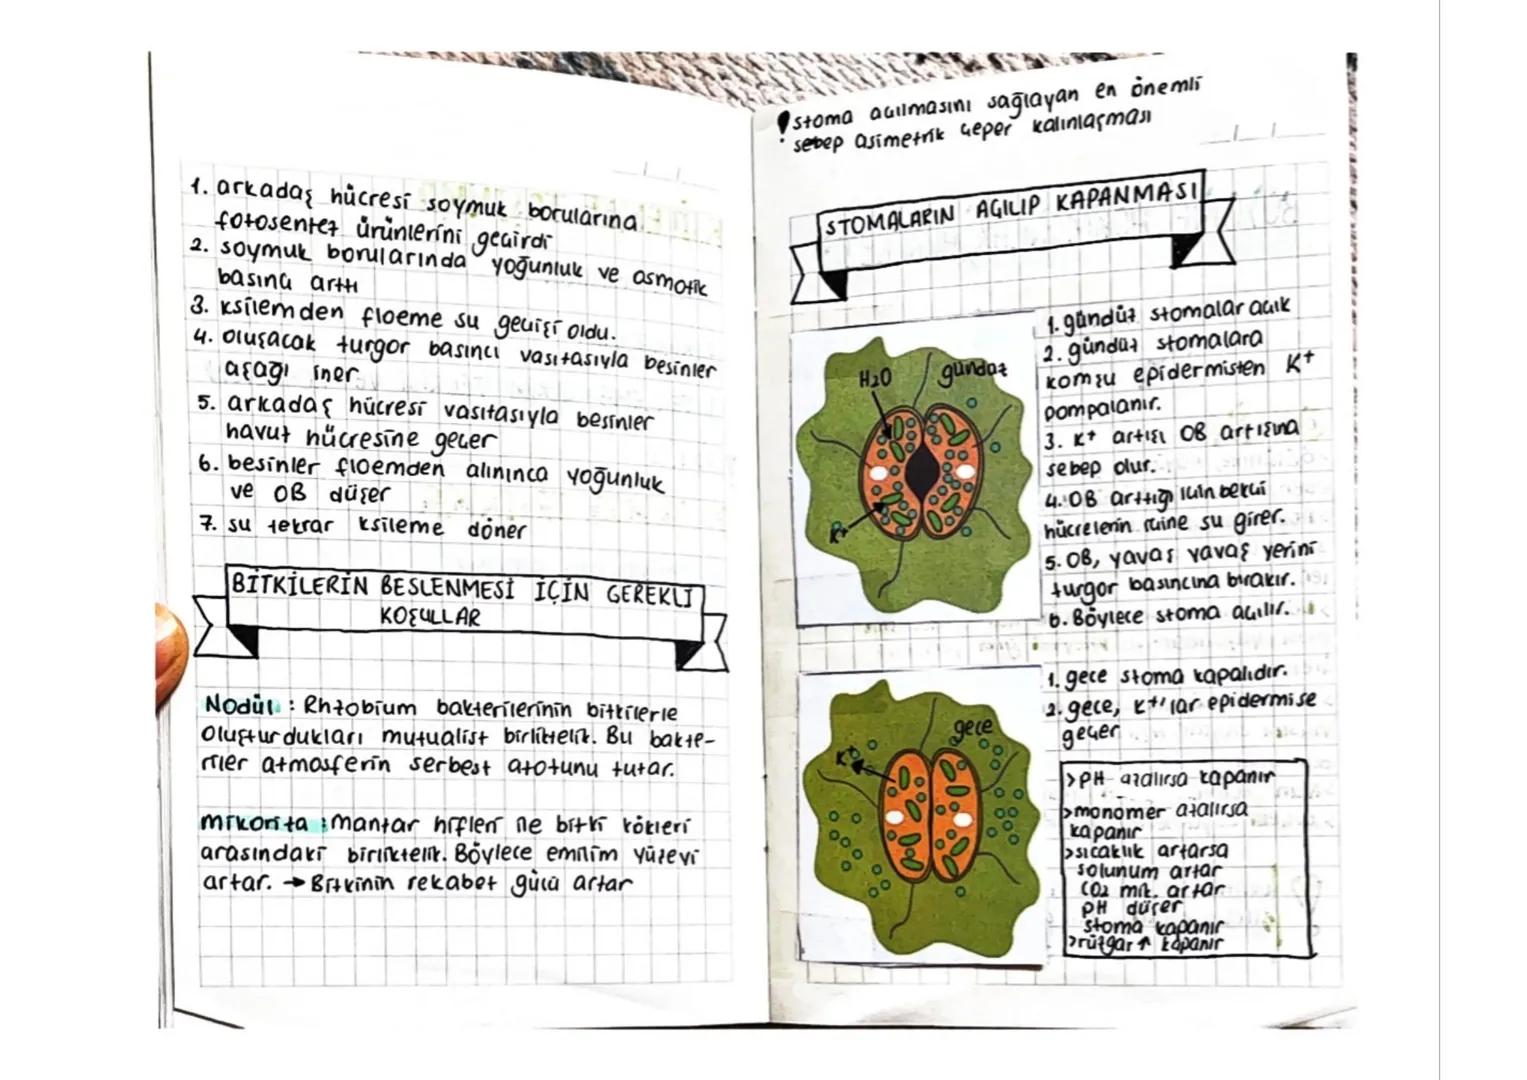 1. arkadaş hücresi soymuk borularına
fotosentez ürünlerini geçirdi
2. soymuk borularında yoğunluk ve osmotik
basınç arttı
3. ksilemden floeme su geçişi oldu.
4. oluşacak turgor basıncı vasıtasıyla besinler
aşağı iner
5. arkadaş hücresi vasıtasıyla besinler
havuz hücresine geçer
6. besinler floemden alınınca yoğunluk
ve OB düşer
7. su tekrar ksileme döner
BİTKİLERİN BESLENMESİ İÇİN GEREKLİ
KOŞULLAR
Nodül : Rhizobium bakterilerinin bitkilerle
oluşturdukları mutualist birliktelik. Bu bakte-
riler atmosferin serbest azotunu tutar.
mikoriza : mantar hifleri ile bitki kökleri
arasındaki birliktelik. Böylece emilim yüzeyi
artar. → Bitkinin rekabet gücü artar
! stoma açılmasını sağlayan en önemli
sebep asimetrik çeper kalınlaşması
STOMALARIN AÇILIP KAPANMASI
H2O
gündüz
K+
1. gündüz stomalar açık
2. gündüz stomalara
komşu epidermisten K+
pompalanır.
3. K+ artışı OB artışına
sebep olur.
4. OB arttığı için bekçi
hücrelerin içine su girer.
5. OB, yavaş yavaş yerini
turgor basıncına bırakır.
6. Böylece stoma açılır.
gece
K+
1. gece stoma kapalıdır.
2. gece, K+'lar epidermise
geçer
>PH azalırsa kapanır
>monomer azalırsa
kapanır
>sıcaklık artarsa
solunum artar
CO2 mik. artar
PH düşer
stoma kapanır
>rüzgar ↑ kapanır